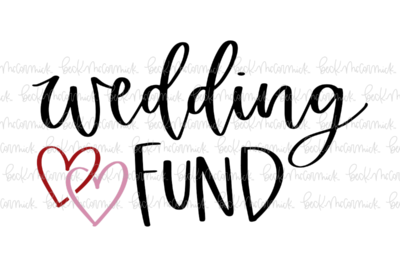 wedding
FUND